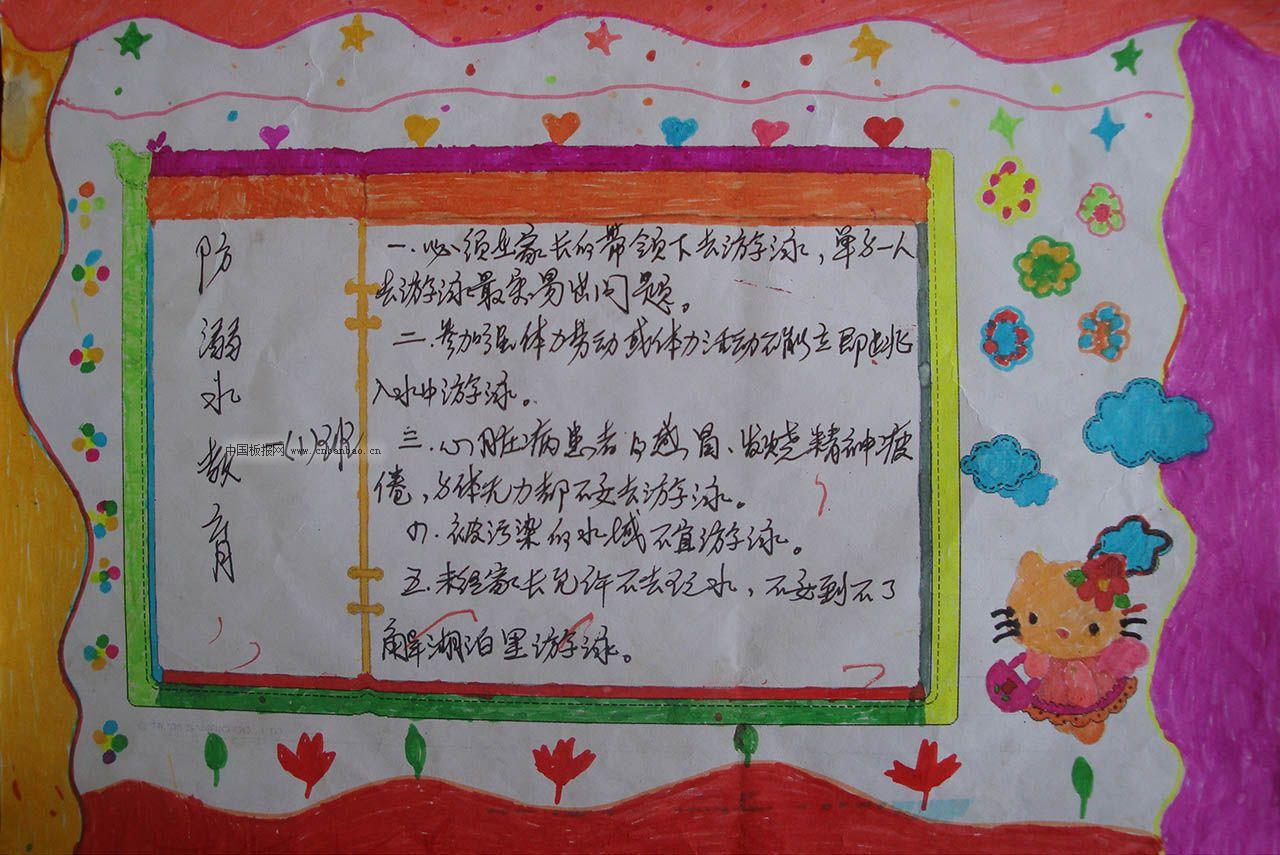 防溺水教育
一(1)班
中国板报网 www.cnbanbao.cn
一.必须在家长的带领下去游泳，单独一人
去游泳最容易出问题。
二.参加强体力劳动或体力活动不能立即跳
入水中游泳。
三.心脏病患者 感冒、发烧精神疲
倦，身体无力都不要去游泳。
四.被污染的水域不宜游泳。
五.未经家长允许不去玩水，不要到不了
解湖泊里游泳。